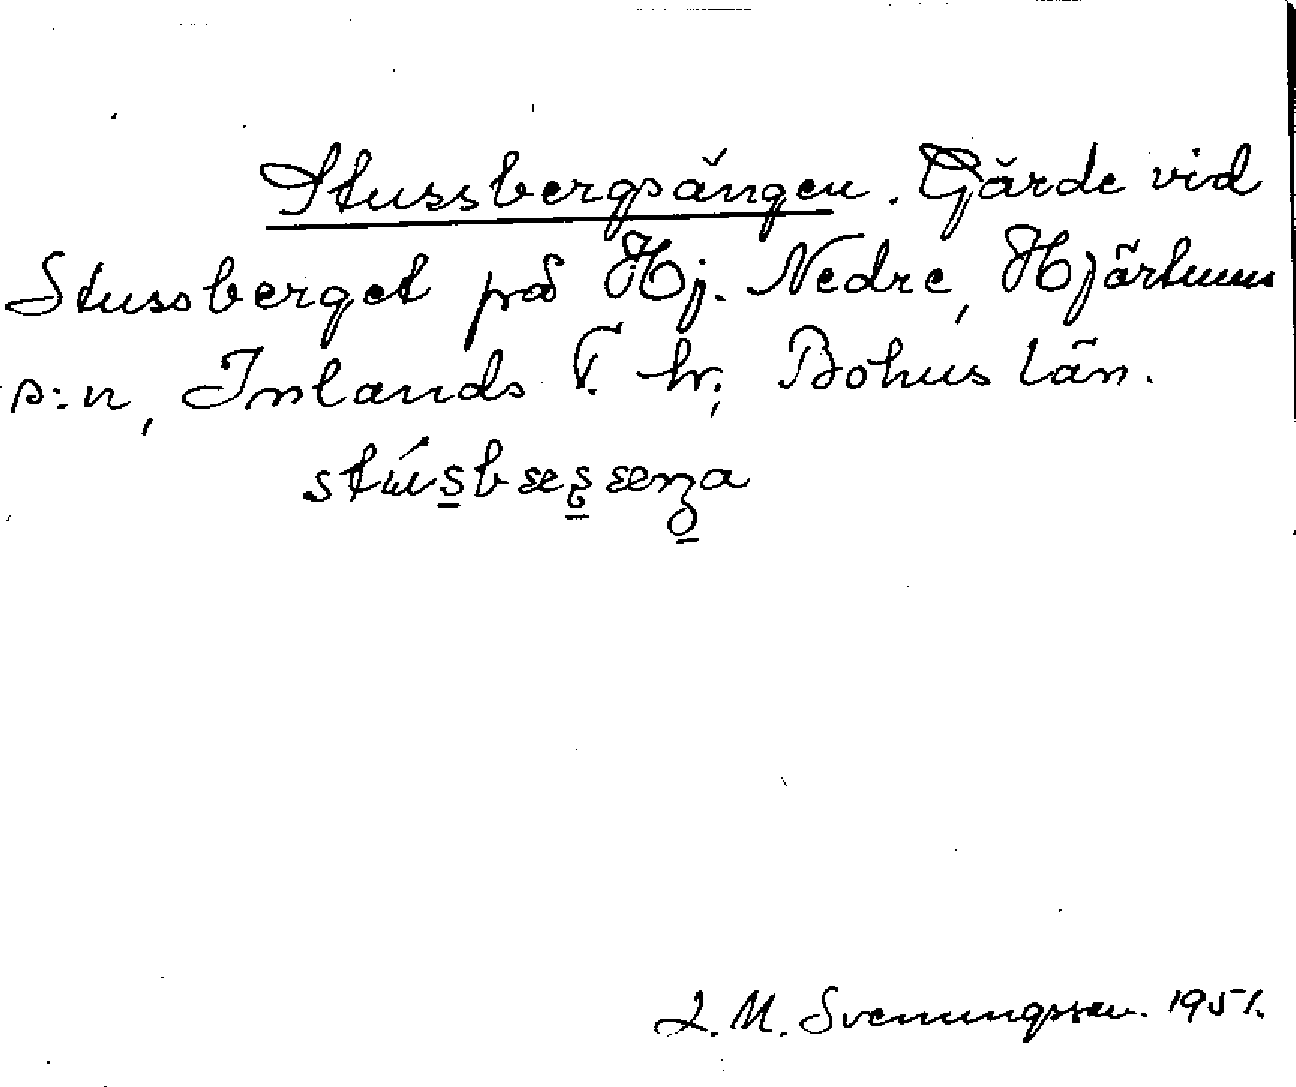 Stussbergsängen. Gärde vid
Stussberget på Hj. Nedre, Hjärtums
s:n, Inlands T. hr, Bohus län.
L. M. Svenungsson. 1951.